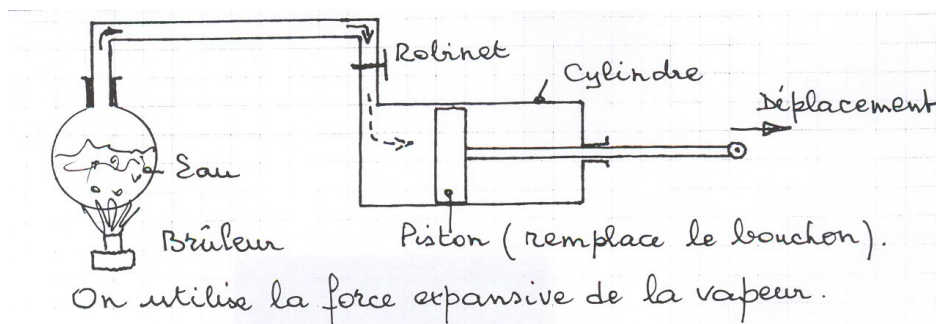 Robinet
Cylindre
Déplacement
Eau
Brûleur
Piston (remplace le bouchon).
On utilise la force expansive de la vapeur.